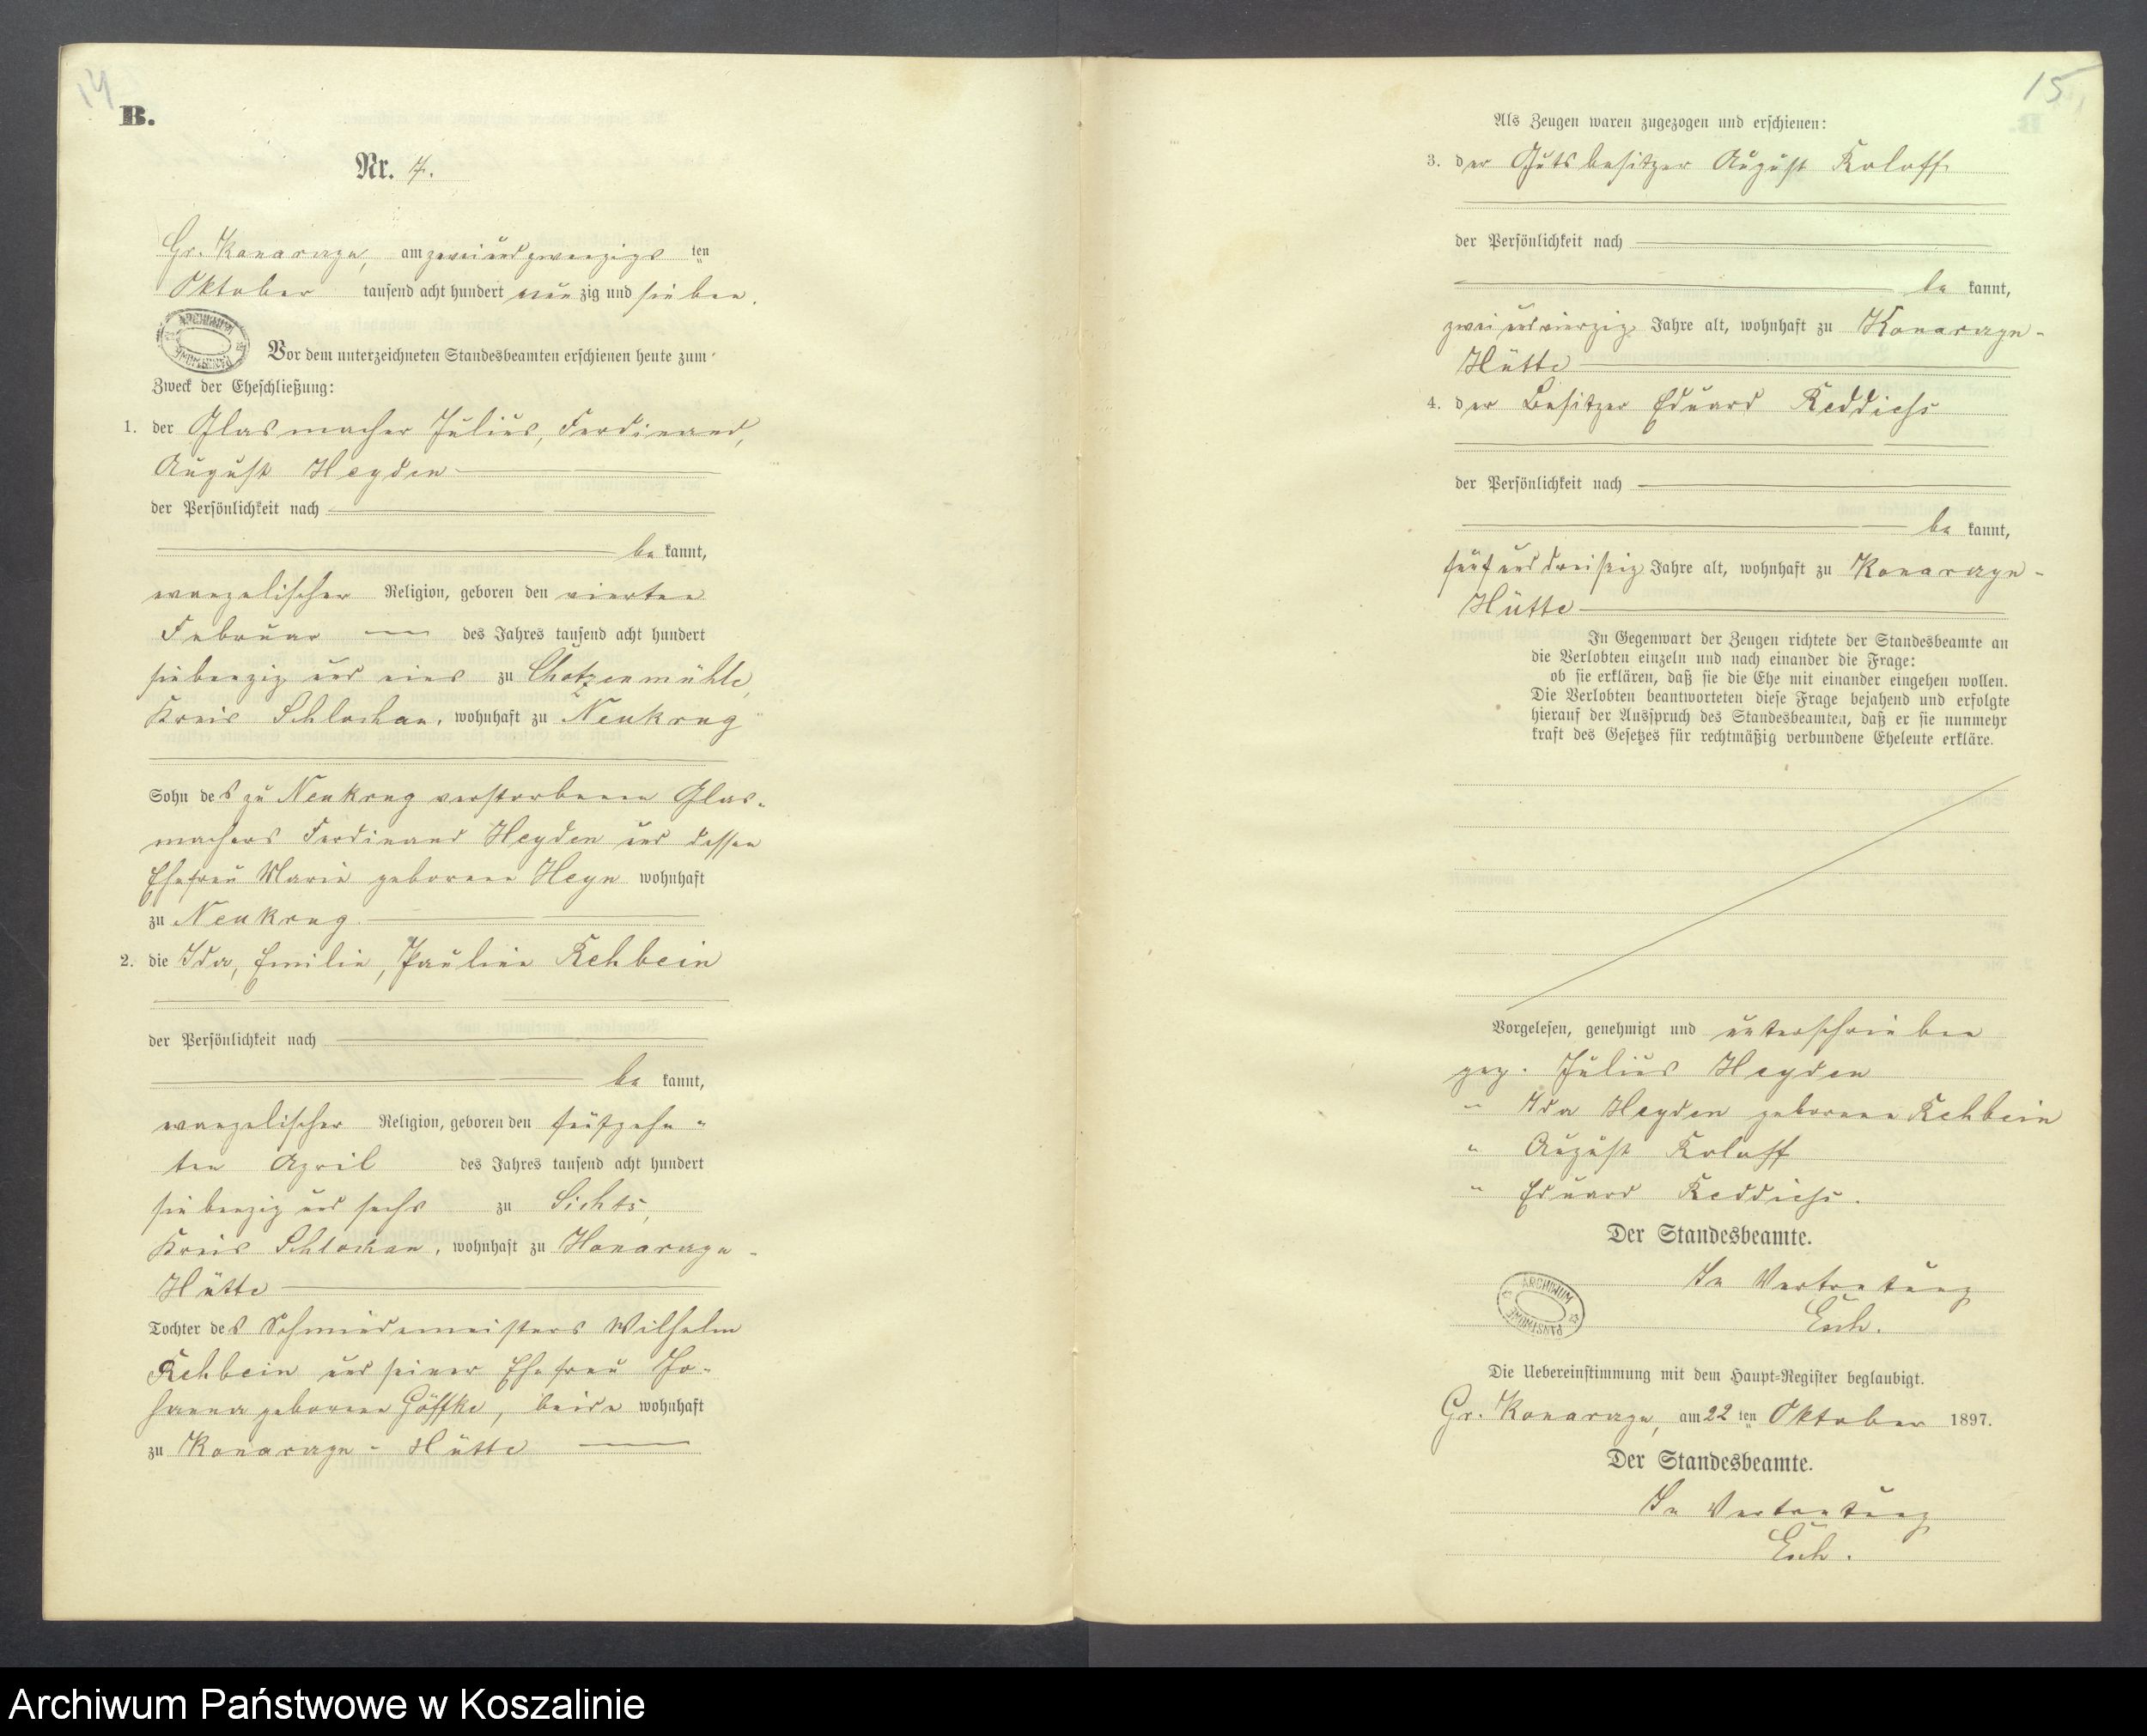 14
B.
Nr. 7.
Gr. Konarzyn, am zweiundzwanzigs ten
Oktober tausend acht hundert neunzig und sieben.
ARCHIWUM PAŃSTWOWE
Vor dem unterzeichneten Standesbeamten erschienen heute zum
Zweck der Eheschließung:
1. der Glasmacher Julius, Ferdinand,
August Heyden
der Persönlichkeit nach
be kannt,
evangelischer Religion, geboren den vierten
Februar des Jahres tausend acht hundert
siebenzig und eins zu Chotzenmühle,
Kreis Schlochau, wohnhaft zu Neukrug
Sohn des zu Neukrug verstorbenen Glas-
machers Ferdinand Heyden und dessen
Ehefrau Marie geborene Heyn wohnhaft
zu Neukrug.
2. die Ida, Emilie, Pauline Rehbein
der Persönlichkeit nach
be kannt,
evangelischer Religion, geboren den fünfzehn-
ten April des Jahres tausend acht hundert
siebenzig und sechs zu Sichts,
Kreis Schlochau, wohnhaft zu Konarzyn-
Hütte
Tochter des Schmiedemeisters Wilhelm
Rehbein und seiner Ehefrau Jo-
hanna geborene Göffke, beide wohnhaft
zu Konarzyn-Hütte
15
Als Zeugen waren zugezogen und erschienen:
3. der Gutsbesitzer August Roloff
der Persönlichkeit nach
be kannt,
zweiundvierzig Jahre alt, wohnhaft zu Konarzyn-
Hütte
4. der Besitzer Eduard Reddichs
der Persönlichkeit nach
be kannt,
fünfunddreißig Jahre alt, wohnhaft zu Konarzyn-
Hütte
In Gegenwart der Zeugen richtete der Standesbeamte an
die Verlobten einzeln und nach einander die Frage:
ob sie erklären, daß sie die Ehe mit einander eingehen wollen.
Die Verlobten beantworteten diese Frage bejahend und erfolgte
hierauf der Ausspruch des Standesbeamten, daß er sie nunmehr
kraft des Gesetzes für rechtmäßig verbundene Eheleute erkläre.
Vorgelesen, genehmigt und unterschrieben
gez. Julius Heyden
" Ida Heyden geborene Rehbein
" August Roloff
" Eduard Reddichs.
Der Standesbeamte.
In Vertretung
ARCHIWUM PAŃSTWOWE
Die Uebereinstimmung mit dem Haupt-Register beglaubigt.
Gr. Konarzyn, am 22 ten Oktober 1897.
Der Standesbeamte.
In Vertretung
Archiwum Państwowe w Koszalinie